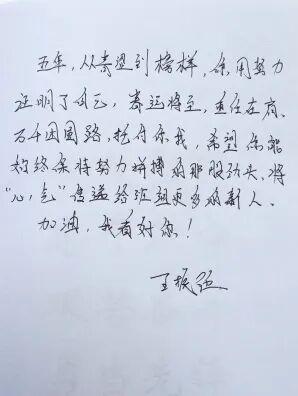 五年，从青涩到榜样，你用努力
证明了自己，春运将至，重任在肩、
万千回国路，托付你我，希望你能
始终保持努力拼搏的那股劲头，将
“心气”传递给班组更多的新人。
加油，我看好你！
王振强